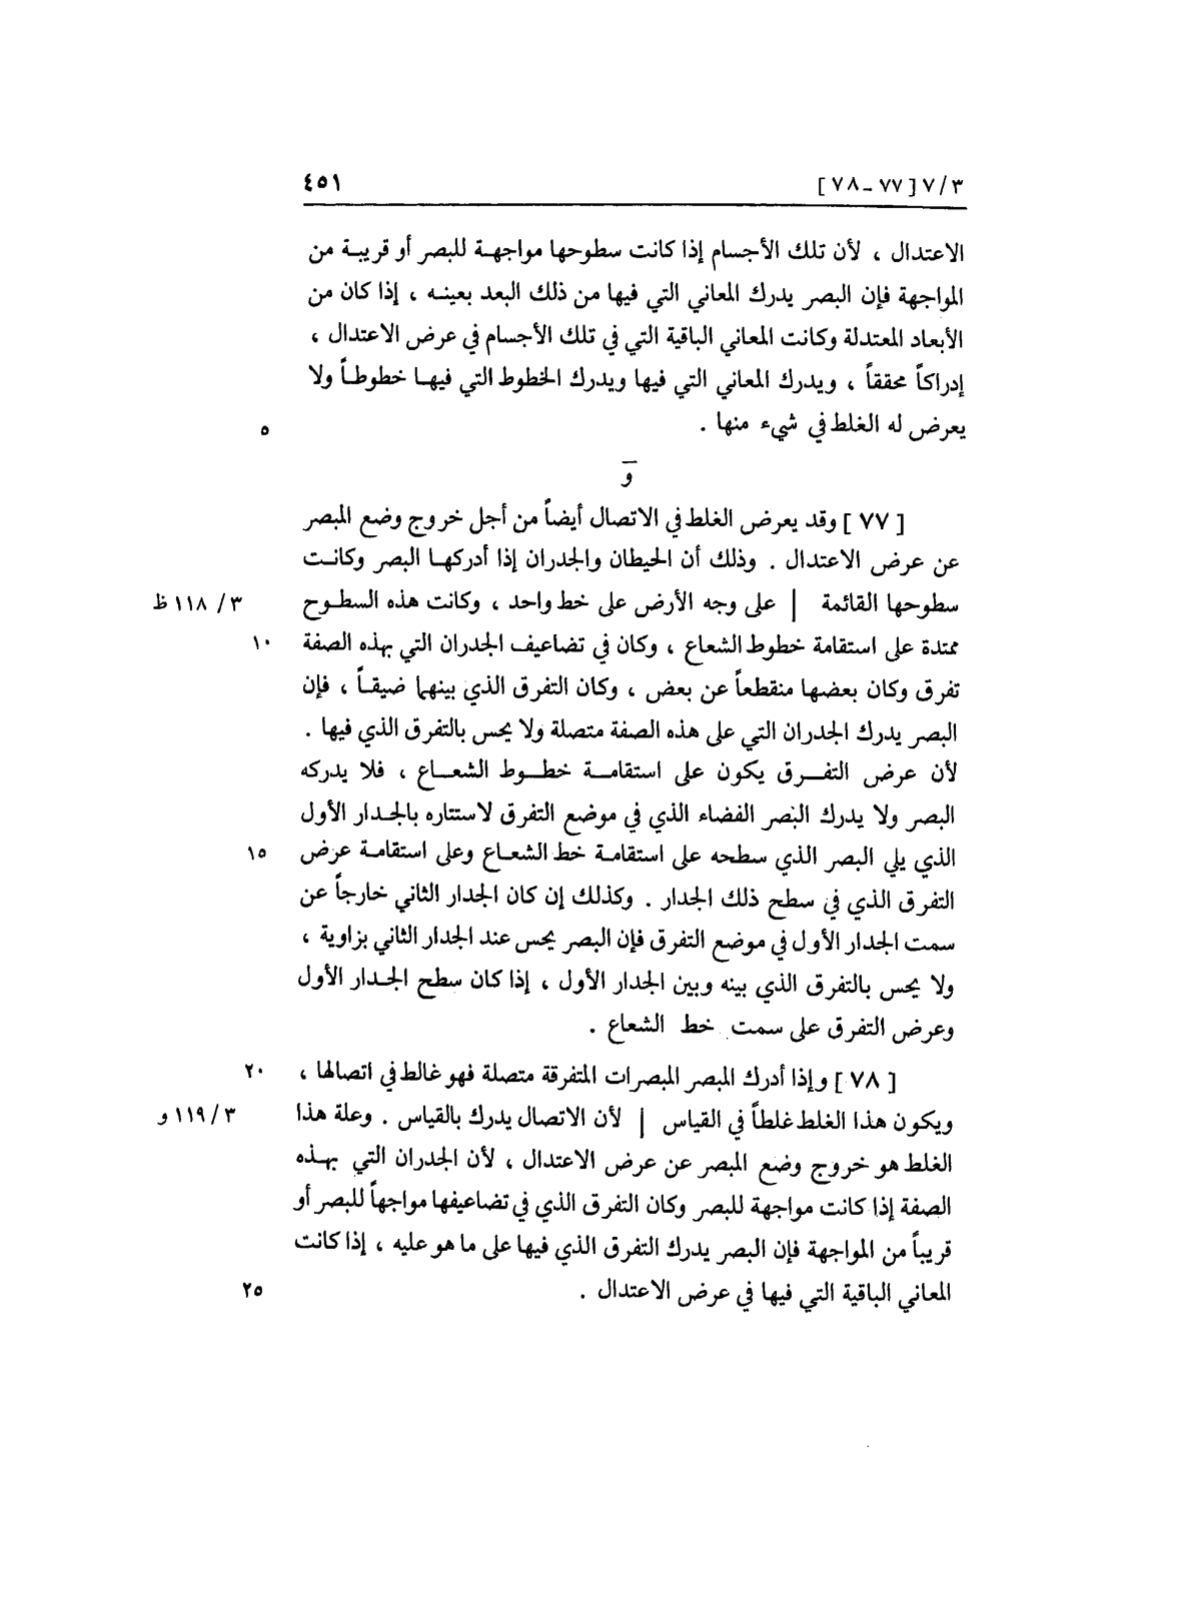 ٣/٧ [٧٧-٧٨] ٤٥١
الاعتدال ، لأن تلك الأجسام إذا كانت سطوحها مواجهة للبصر أو قريبة من
المواجهة فإن البصر يدرك المعاني التي فيها من ذلك البعد بعينه ، إذا كان من
الأبعاد المعتدلة وكانت المعاني الباقية التي في تلك الأجسام في عرض الاعتدال ،
إدراكاً محققاً ، ويدرك المعاني التي فيها ويدرك الخطوط التي فيها خطوطاً ولا
يعرض له الغلط في شيء منها . ٥
و
[ ٧٧ ] وقد يعرض الغلط في الاتصال أيضاً من أجل خروج وضع المبصر
عن عرض الاعتدال . وذلك أن الحيطان والجدران إذا أدركها البصر وكانت
سطوحها القائمة | على وجه الأرض على خط واحد ، وكانت هذه السطوح ٣/ ١١٨ ظ
ممتدة على استقامة خطوط الشعاع ، وكان في تضاعيف الجدران التي بهذه الصفة ١٠
تفرق وكان بعضها منقطعاً عن بعض ، وكان التفرق الذي بينهما ضيقاً ، فإن
البصر يدرك الجدران التي على هذه الصفة متصلة ولا يحس بالتفرق الذي فيها .
لأن عرض التفرق يكون على استقامة خطوط الشعاع ، فلا يدركه
البصر ولا يدرك البصر الفضاء الذي في موضع التفرق لاستتاره بالجدار الأول
الذي يلي البصر الذي سطحه على استقامة خط الشعاع وعلى استقامة عرض ١٥
التفرق الذي في سطح ذلك الجدار . وكذلك إن كان الجدار الثاني خارجاً عن
سمت الجدار الأول في موضع التفرق فإن البصر يحس عند الجدار الثاني بزاوية ،
ولا يحس بالتفرق الذي بينه وبين الجدار الأول ، إذا كان سطح الجدار الأول
وعرض التفرق على سمت خط الشعاع .
[ ٧٨ ] وإذا أدرك المبصر المبصرات المتفرقة متصلة فهو غالط في اتصالها ، ٢٠
ويكون هذا الغلط غلطاً في القياس | لأن الاتصال يدرك بالقياس . وعلة هذا ٣/ ١١٩ و
الغلط هو خروج وضع المبصر عن عرض الاعتدال ، لأن الجدران التي بهذه
الصفة إذا كانت مواجهة للبصر وكان التفرق الذي في تضاعيفها مواجهاً للبصر أو
قريباً من المواجهة فإن البصر يدرك التفرق الذي فيها على ما هو عليه ، إذا كانت
المعاني الباقية التي فيها في عرض الاعتدال . ٢٥